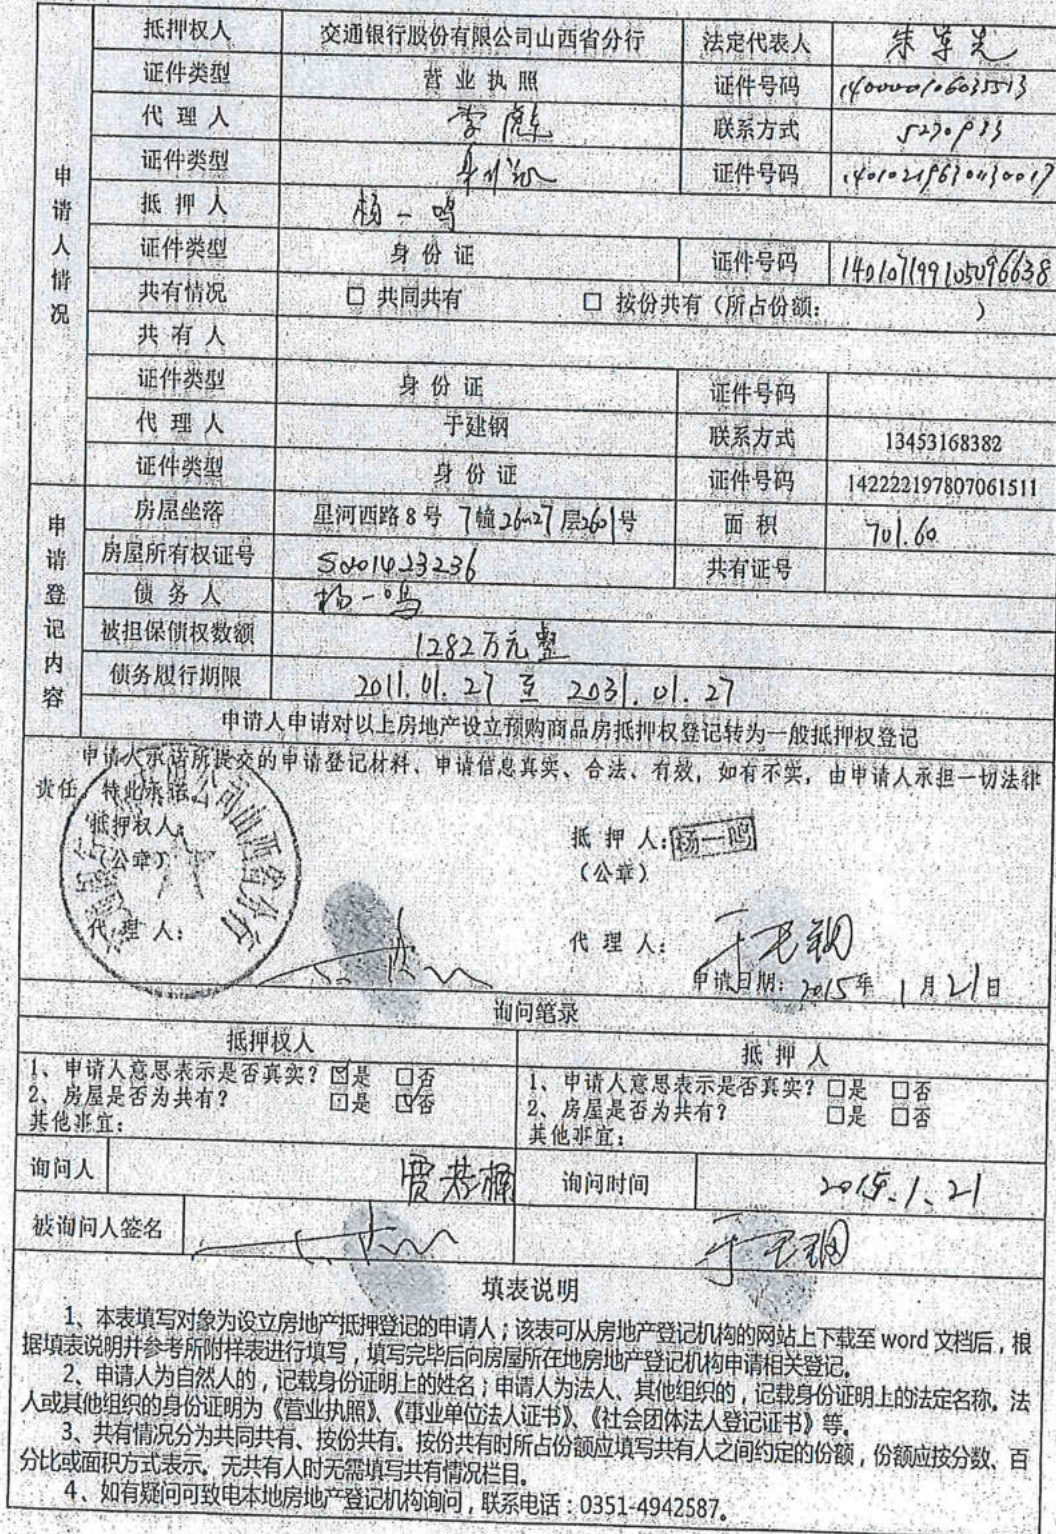 抵押权人 交通银行股份有限公司山西省分行 法定代表人
证件类型 营业执照 证件号码
代理人 联系方式
证件类型 证件号码
申请人情况
抵押人 杨一鸣
证件类型 身份证 证件号码 140107199105096638
共有情况 □ 共同共有 □ 按份共有（所占份额： ）
共有人
证件类型 身份证 证件号码
代理人 于建钢 联系方式 13453168382
证件类型 身份证 证件号码 142222197807061511
申请登记内容
房屋坐落 星河西路8号 7幢26-27层2601号 面积 701.60
房屋所有权证号 S201423236 共有证号
债务人 杨一鸣
被担保债权数额 1282万元整
债务履行期限 2011.01.27 至 2031.01.27
申请人申请对以上房地产设立预购商品房抵押权登记转为一般抵押权登记
申请人承诺所提交的申请登记材料、申请信息真实、合法、有效，如有不实，由申请人承担一切法律
责任，特此承诺。
抵押权人： 抵押人：杨一鸣
（公章） （公章）
代理人： 代理人：
申请日期：2015年 1月21日
询问笔录
抵押权人 抵押人
1、申请人意思表示是否真实？☑是 □否 1、申请人意思表示是否真实？□是 □否
2、房屋是否为共有？ □是 ☑否 2、房屋是否为共有？ □是 □否
其他事宜： 其他事宜：
询问人 询问时间 2015.1.21
被询问人签名
填表说明
1、本表填写对象为设立房地产抵押登记的申请人；该表可从房地产登记机构的网站上下载至 word 文档后，根
据填表说明并参考所附样表进行填写，填写完毕后向房屋所在地房地产登记机构申请相关登记。
2、申请人为自然人的，记载身份证明上的姓名；申请人为法人、其他组织的，记载身份证明上的法定名称。法
人或其他组织的身份证明为《营业执照》、《事业单位法人证书》、《社会团体法人登记证书》等。
3、共有情况分为共同共有、按份共有。按份共有时所占份额应填写共有人之间约定的份额，份额应按分数、百
分比或面积方式表示。无共有人时无需填写共有情况栏目。
4、如有疑问可致电本地房地产登记机构询问，联系电话：0351-4942587。